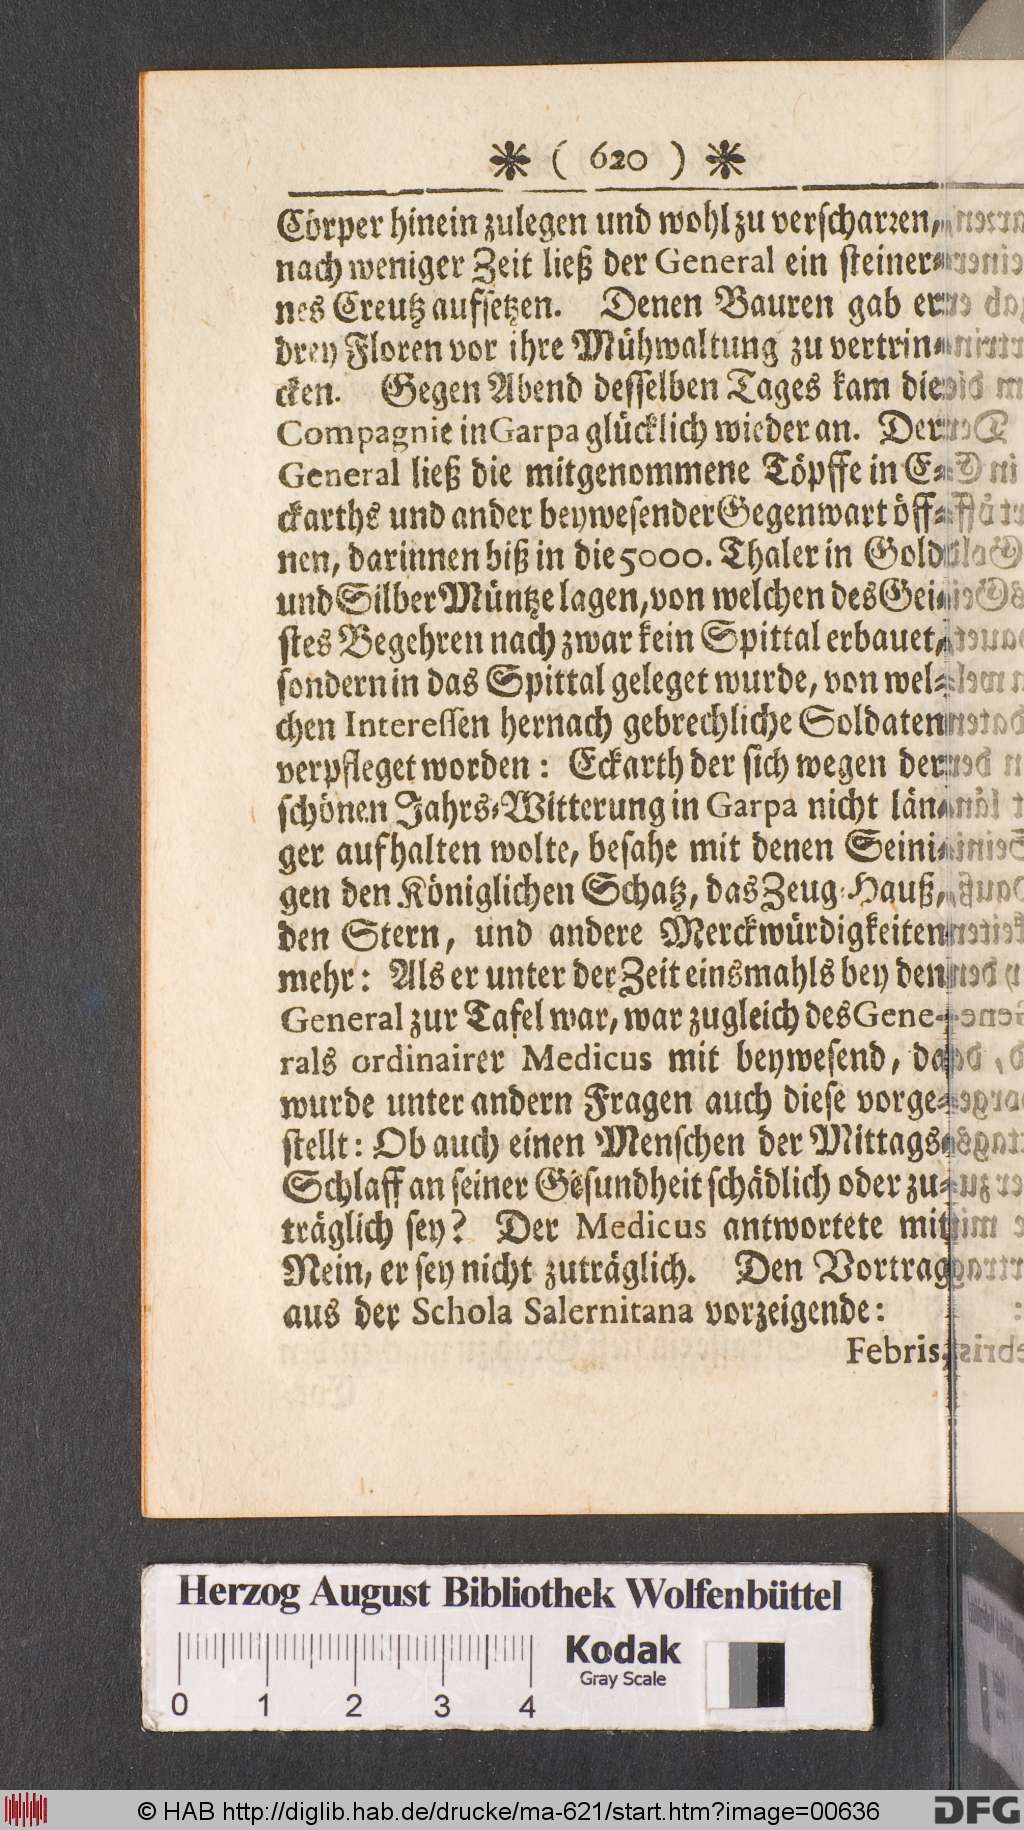 * ( 620 ) *
Cörper hinein zulegen und wohl zu verscharren,
nach weniger Zeit ließ der General ein steiner-
nes Creutz aufsetzen. Denen Bauren gab er
drey Floren vor ihre Mühwaltung zu vertrin-
cken. Gegen Abend desselben Tages kam die
Compagnie in Garpa glücklich wieder an. Der
General ließ die mitgenommene Töpffe in E-
ckarths und ander beywesender Gegenwart öff-
nen, darinnen biß in die 5000. Thaler in Gold
und Silber Müntze lagen, von welchen des Gei-
stes Begehren nach zwar kein Spittal erbauet,
sondern in das Spittal geleget wurde, von wel-
chen Interessen hernach gebrechliche Soldaten
verpfleget worden: Eckarth der sich wegen der
schönen Jahrs-Witterung in Garpa nicht län-
ger aufhalten wolte, besahe mit denen Seini-
gen den Königlichen Schatz, das Zeug-Hauß,
den Stern, und andere Merckwürdigkeiten
mehr: Als er unter der Zeit einsmahls bey den
General zur Tafel war, war zugleich des Gene-
rals ordinairer Medicus mit beywesend, da
wurde unter andern Fragen auch diese vorge-
stellt: Ob auch einen Menschen der Mittags-
Schlaff an seiner Gesundheit schädlich oder zu-
träglich sey? Der Medicus antwortete mit
Nein, er sey nicht zuträglich. Den Vortrag
aus der Schola Salernitana vorzeigende:
Febris,
Herzog August Bibliothek Wolfenbüttel
Kodak
Gray Scale
0 1 2 3 4
© HAB http://diglib.hab.de/drucke/ma-621/start.htm?image=00636
DFG